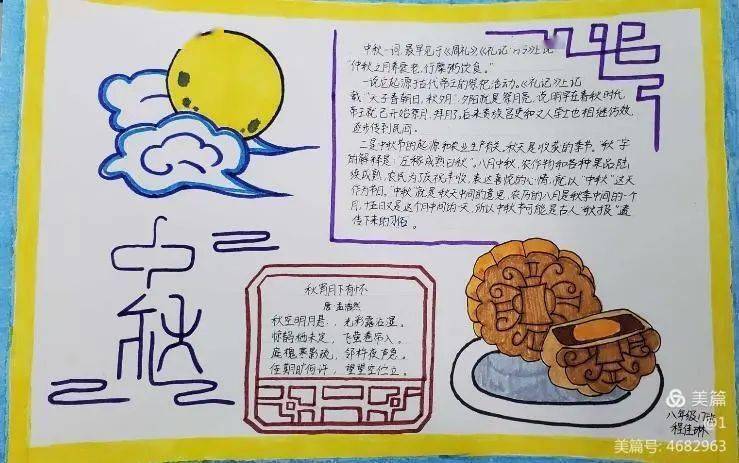 中秋一词,最早见于《周礼》,《礼记·月令》上记
"仲秋之月养衰老,行糜粥饮食。"
一说它起源于古代帝王的祭祀活动。《礼记》上记
载:"天子春朝日,秋夕月",夕月就是祭月亮,说明早在春秋时代,
帝王就已开始祭月、拜月了,后来贵族官吏和文人学士也相继仿效,
逐步传到民间。
二是中秋节的起源和农业生产有关。秋天是收获的季节。"秋"字
的解释是:"庄稼成熟曰秋"。八月中秋,农作物和各种果品陆
续成熟,农民为了庆祝丰收,表达喜悦的心情,就以"中秋"这天
作为节日。"中秋"就是秋天中间的意思,农历的八月是秋季中间的一个
月,十五日又是这个月中间的一天,所以中秋节可能是古人"秋报"遗
传下来的习俗。
中秋
秋宵月下有怀
唐 孟浩然
秋空明月悬,光彩露沾湿。
惊鹊栖未定,飞萤卷帘入。
庭槐寒影疏,邻杵夜声急。
佳期旷何许,望望空伫立。
八年级
程佳琳
美篇
美篇号: 4682963